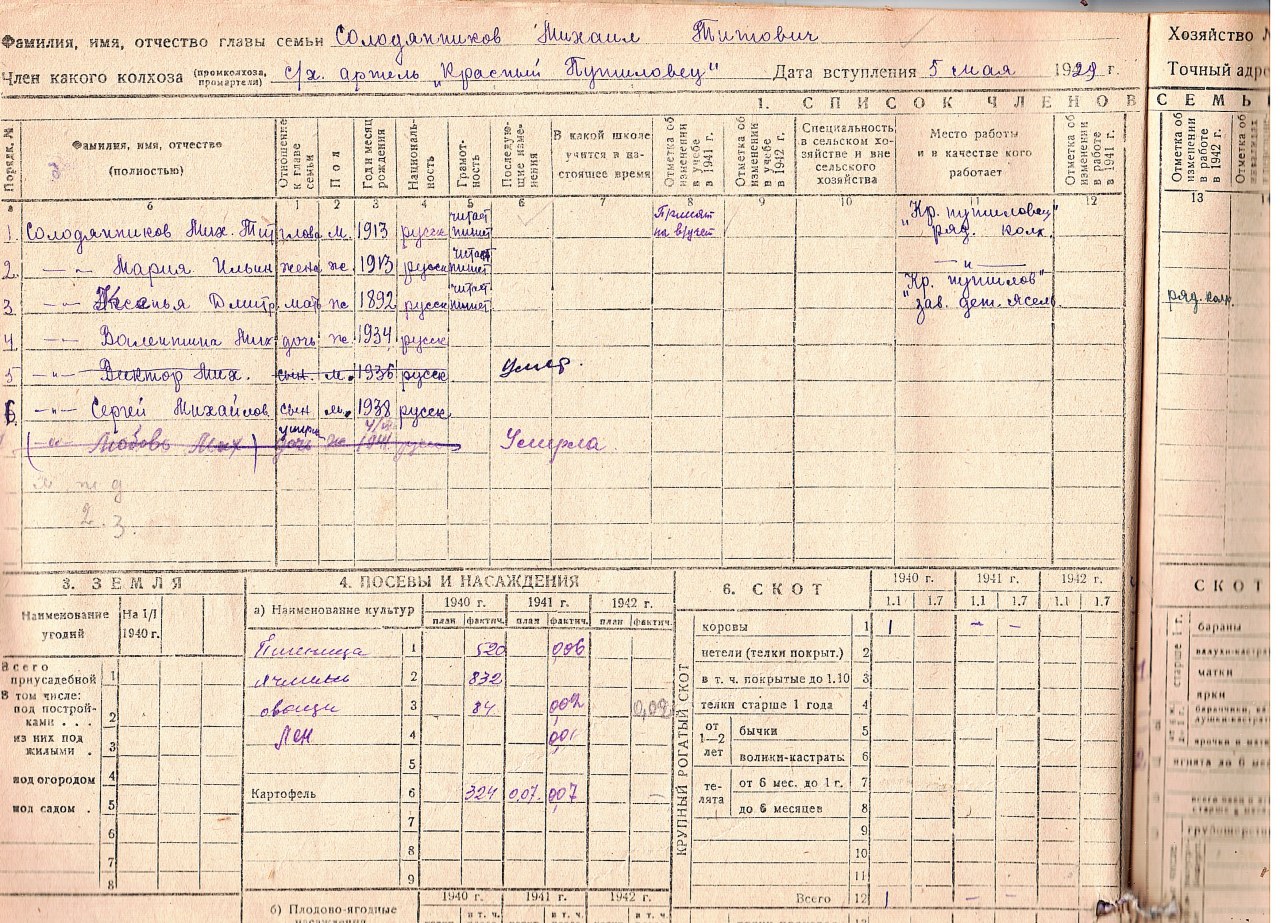 Фамилия, имя, отчество главы семьи Солодянников Михаил Титович
Член какого колхоза (промколхоза, промартели) с/х. артель "Красный Путиловец" Дата вступления 5 мая 1929 г.
Хозяйство №
Точный адре
1. СПИСОК ЧЛЕНОВ СЕМЬ
Порядк. № Фамилия, имя, отчество (полностью) Отношение к главе семьи Пол Год и месяц рождения Националь-ность Грамот-ность Последую-щие изме-нения В какой школе учится в на-стоящее время Отметка об изменении в учебе в 1941 г. Отметка об изменении в учебе в 1942 г. Специальность в сельском хо-зяйстве и вне сельского хозяйства Место работы и в качестве кого работает Отметка об изменении в работе в 1941 г. Отметка об изменении в работе в 1942 г. Отметка об
а б 1 2 3 4 5 6 7 8 9 10 11 12 13
1. Солодянников Мих. Тит глава м. 1913 русск читает пишет Принят на в/учет "Кр. путиловец" ряд. колх.
2. —"— Мария Ильин жена ж 1913 русск читает пишет —"—
3. —"— Ксенья Дмитр. мать ж 1892 русск читает пишет "Кр. путилов" зав. дет. ясел. ряд. колх.
4. —"— Валентина Мих дочь ж. 1934 русск
5 —"— Виктор Мих. сын. м. 1936 русск Умер.
6. —"— Сергей Михайлов. сын м. 1938 русск.
(—"— Любовь Мих) умерла дочь ж 1941 русск Умерла
2. 3.
3. ЗЕМЛЯ
Наименование угодий На 1/I 1940 г.
Всего приусадебной 1
В том числе: под построй-ками . . . 2
из них под жилыми . 3
под огородом 4
под садом . 5
6
7
8
4. ПОСЕВЫ И НАСАЖДЕНИЯ
а) Наименование культур 1940 г. 1941 г. 1942 г.
план фактич. план фактич. план фактич.
Пшеница 1 520 006
Ячмень 2 832
овощи 3 84 002 0,02
Лен 4 001
5
Картофель 6 324 0,07. 007
7
8
9
б) Плодово-ягодные насаждения 1940 г. 1941 г. 1942 г.
в т. ч. в т. ч. в т. ч.
6. СКОТ
1940 г. 1941 г. 1942 г.
1.1 1.7 1.1 1.7 1.1 1.7
КРУПНЫЙ РОГАТЫЙ СКОТ
коровы 1 1 – –
нетели (телки покрыт.) 2
в т. ч. покрытые до 1.10 3
телки старше 1 года 4
от 1—2 лет бычки 5
волики-кастраты 6
те-лята от 6 мес. до 1 г. 7
до 6 месяцев 8
9
10
11
Всего 12 1 – –
СКОТ
старше 1 г.
бараны
матки
ярки
ягнята до 6 мес